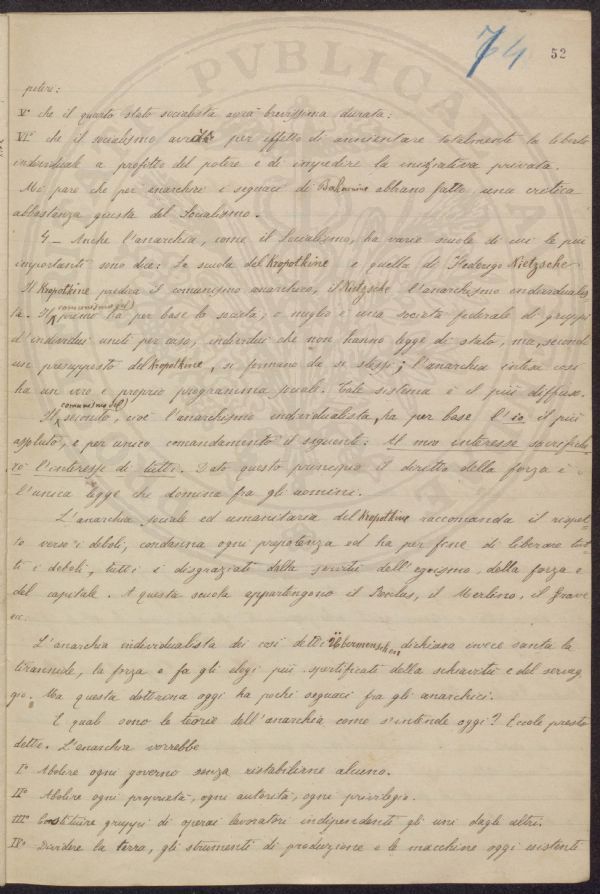 74 52
poteri:
V° che il quarto stato socialista avrà brevissima durata:
VI° che il socialismo avrà per effetto di annientare totalmente la libertà
individuale a profitto del potere e di impedire la iniziativa privata.
Mi pare che per anarchici i seguaci di Bakounine abbiano fatto una critica
abbastanza giusta del Socialismo.
4 – Anche l'anarchia, come il Socialismo, ha varie scuole di cui le più
importanti sono due: la scuola del Kropotkine e quella di Federigo Nietzsche
Il Kropotkine predica il comunismo anarchico, il Nietzsche l'anarchismo individualis
ta. Il (comunismo del) primo ha per base la società, o meglio è una società federale di gruppi
d'individui uniti per caso, individui che non hanno legge di stato, ma, secondo
un presupposto del Kropotkine, si formano da sè stessi; l'anarchia intesa così
ha un vero e proprio programma sociale. Tale sistema è il più diffuso.
Il (comunismo del) secondo, cioè l'anarchismo individualista, ha per base l'io il più
assoluto, e per unico comandamento il seguente: Al mio interesse sacrifiche
rò l'interesse di tutti. Dato questo principio il diritto della forza è
l'unica legge che domina fra gli uomini.
L'anarchia sociale ed umanitaria del Kropotkine raccomanda il rispet=
to verso i deboli, condanna ogni prepotenza ed ha per fine di liberare tut
ti i deboli, tutti i disgraziati dalla servitù dell'egoismo, della forza e
del capitale. A questa scuola appartengono il Reclus, il Merlino, il Grave
ec.
L'anarchia individualista dei così detti Übermenschen dichiara invece santa la
tirannide, la forza e fa gli elogi più sperticati della schiavitù e del servag
gio. Ma questa dottrina oggi ha pochi seguaci fra gli anarchici.
E quali sono le teorie dell'anarchia come s'intende oggi? Eccole presto
dette. L'anarchia vorrebbe
I° Abolire ogni governo senza ristabilirne alcuno.
II° Abolire ogni proprietà, ogni autorità, ogni privilegio.
III° Costituire gruppi di operai lavoratori indipendenti gli uni dagli altri.
IV° Dividere la terra, gli strumenti di produzione e le macchine oggi esistenti